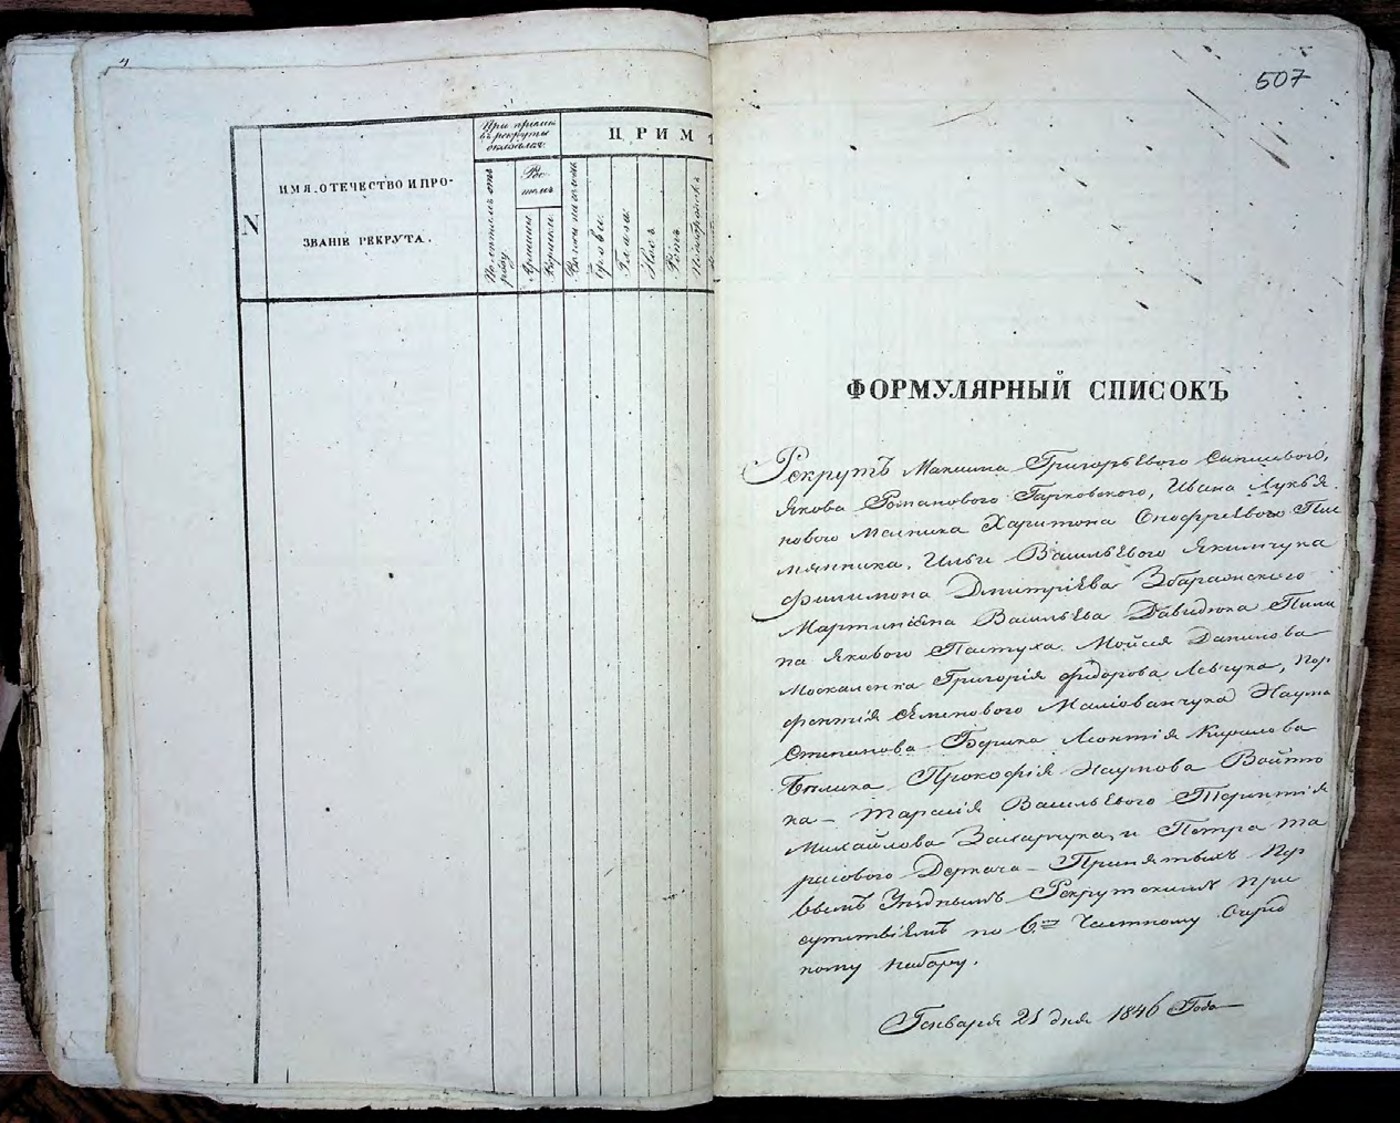 N
ИМЯ, ОТЕЧЕСТВО И ПРО-
ЗВАНІЕ РЕКРУТА.
При приемѣ
въ рекруты
оказался:
ПРИМ
Ро-
стомъ
Аршины
Вершки
Брови
Глаза
Носъ
Ротъ
Подбородокъ
507
ФОРМУЛЯРНЫЙ СПИСОКЪ
Рекрутъ Максима Григорьевого
Якова Романового Гарковского, Ивана Лукья
нового Мельника Харитона Онофріевого Пле
мянника, Ильи Васильевого Якимчука
Филимона Дмитріева Збараонского
Мартиніана Васильева Давидюка Пили
па Якового Пастуха Мойсія Данилова
Москаленка Григорія Федорова Левчука, Пор
фентія Семенового Маліованчука Наума
Степанова Леонтія Кирилова
Билика Прокофія Наумова Войто
ка - Тарасія Васильевого Терентія
Михайлова Захарчука, и Петра Та
расового Деркача - Принятыхъ Пер
вымъ Уѣзднымъ Рекрутскимъ При
сутствіемъ по 6му Частному Очеред
ному набору.
Генваря 21 дня 1846 Года